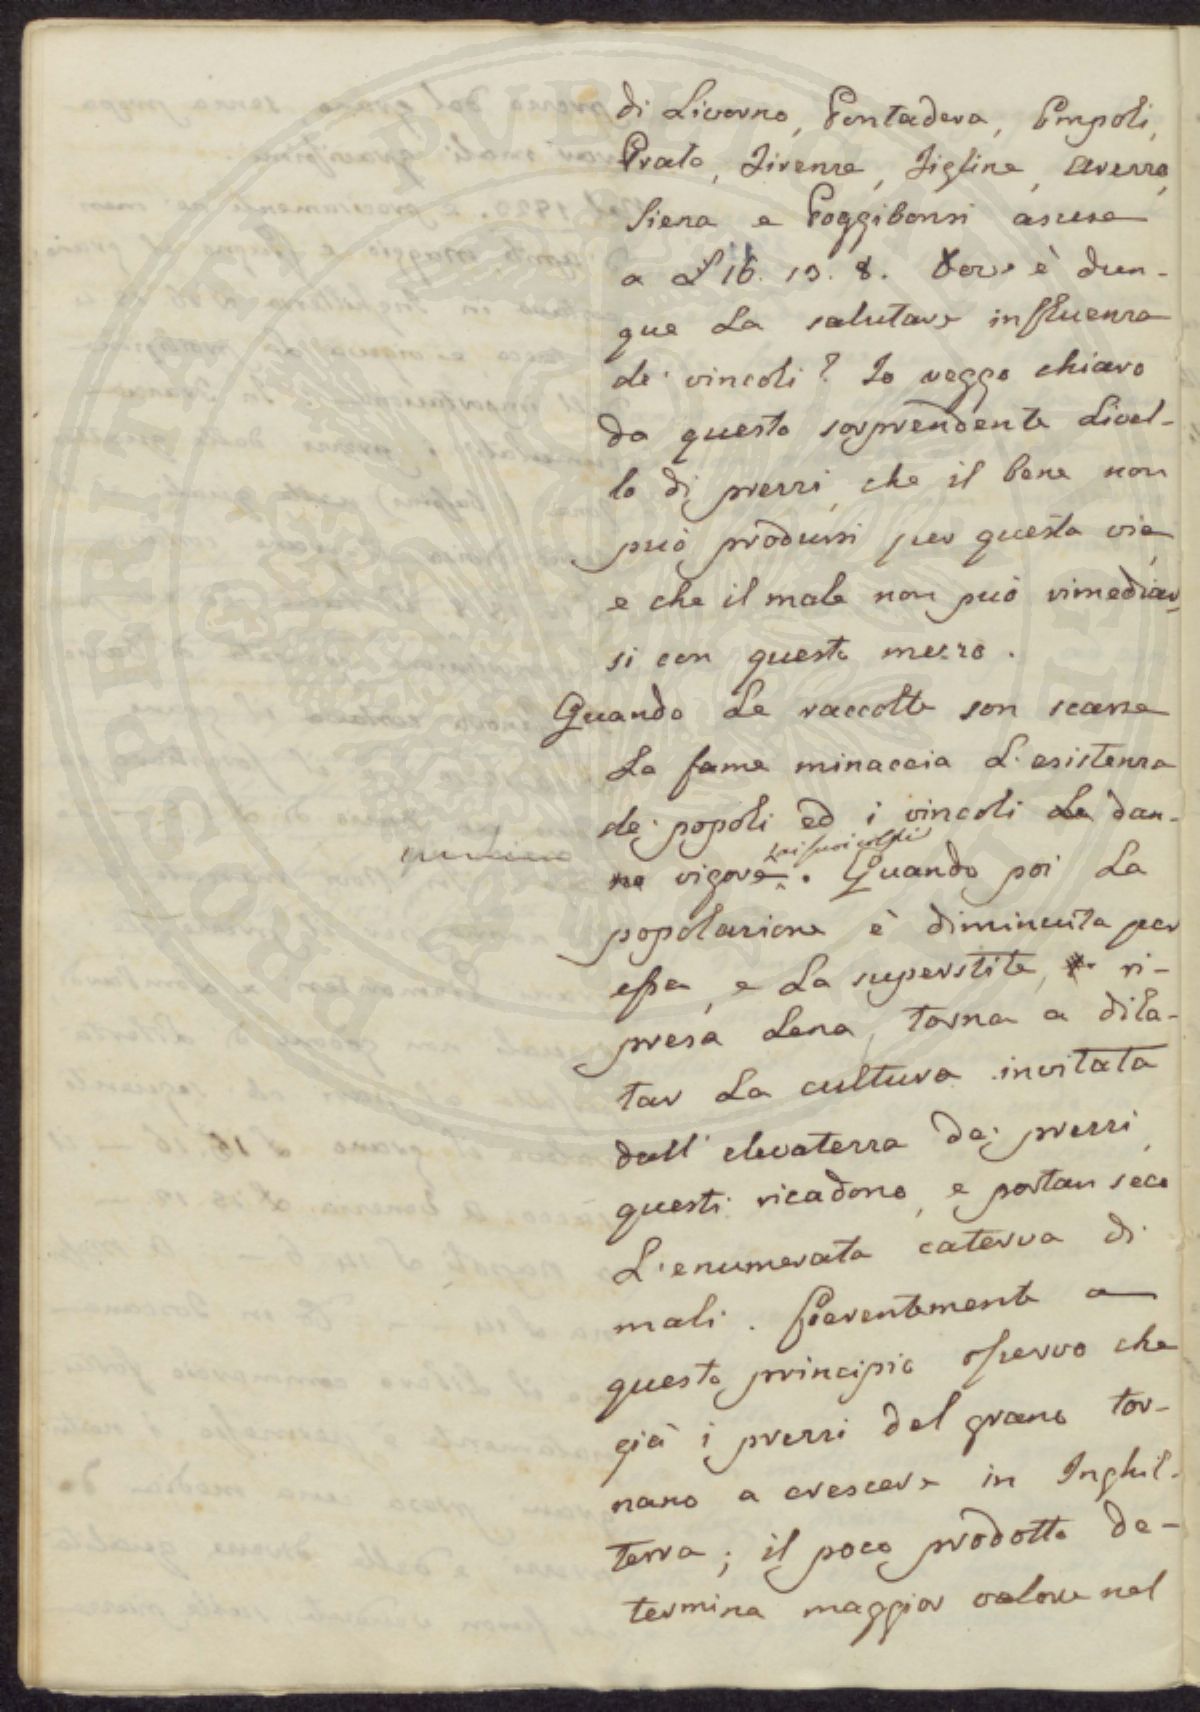 di Livorno, Pontadera, Empoli,
Prato, Firenze, Figline, Arezzo,
Siena e Poggibonsi ascese
a £ 16. 13. 8. Dov'è dun-
que la salutare influenza
de' vincoli? Io veggo chiaro
da questo sorprendente livel-
lo di prezzi, che il bene non
può prodursi per questa via,
e che il male non può rimediar-
si con questo mezzo.
Quando le raccolte son scarse
la fame minaccia l'esistenza
de' popoli ed i vincoli le dan-
no vigore. Quando poi la
popolazione è diminuita per
essa, e la superstite, ri-
presa lena, torna a dila-
tar la cultura invitata
dall'elevatezza de' prezzi,
questi ricadono, e portan seco
l'enumerata caterva di
mali.
questo principio osservo che
già i prezzi del grano tor-
nano a crescere in Inghil-
terra; il poco prodotto de-
termina maggior valore nel
PVBLICAE
PROSPERITATI